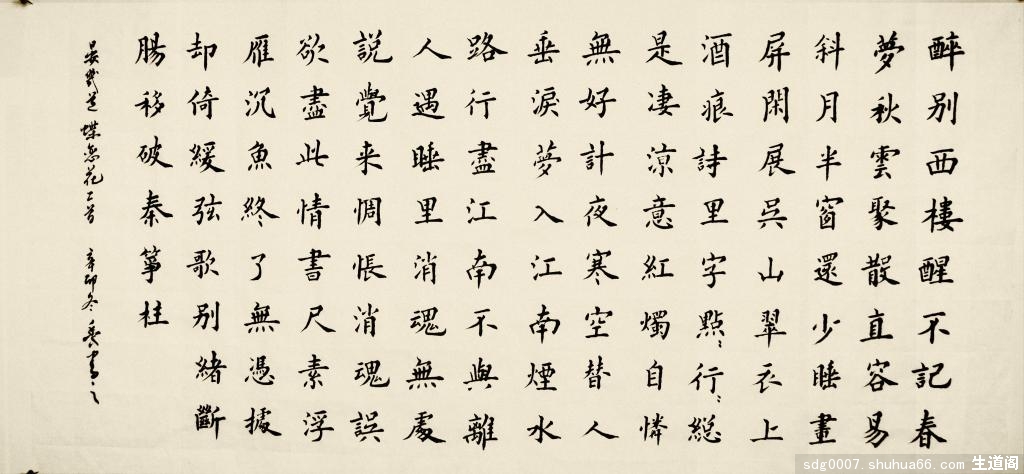 醉别西樓醒不記春
夢秋雲聚散直容易
斜月半窗還少睡畫
屏閑展吳山翠衣上
酒痕詩里字點〻行〻総
是凄凉意紅燭自憐
無好計夜寒空替人
垂淚夢入江南煙水
路行盡江南不與離
人遇睡里消魂無處
説覺来惆悵消魂誤
欲盡此情書尺素浮
雁沉魚終了無憑據
却倚緩弦歌别緒斷
腸移破秦箏柱
晏幾道 蝶恋花二首 辛卯冬 書之
sdg0007.shuhua66.com 生道阁